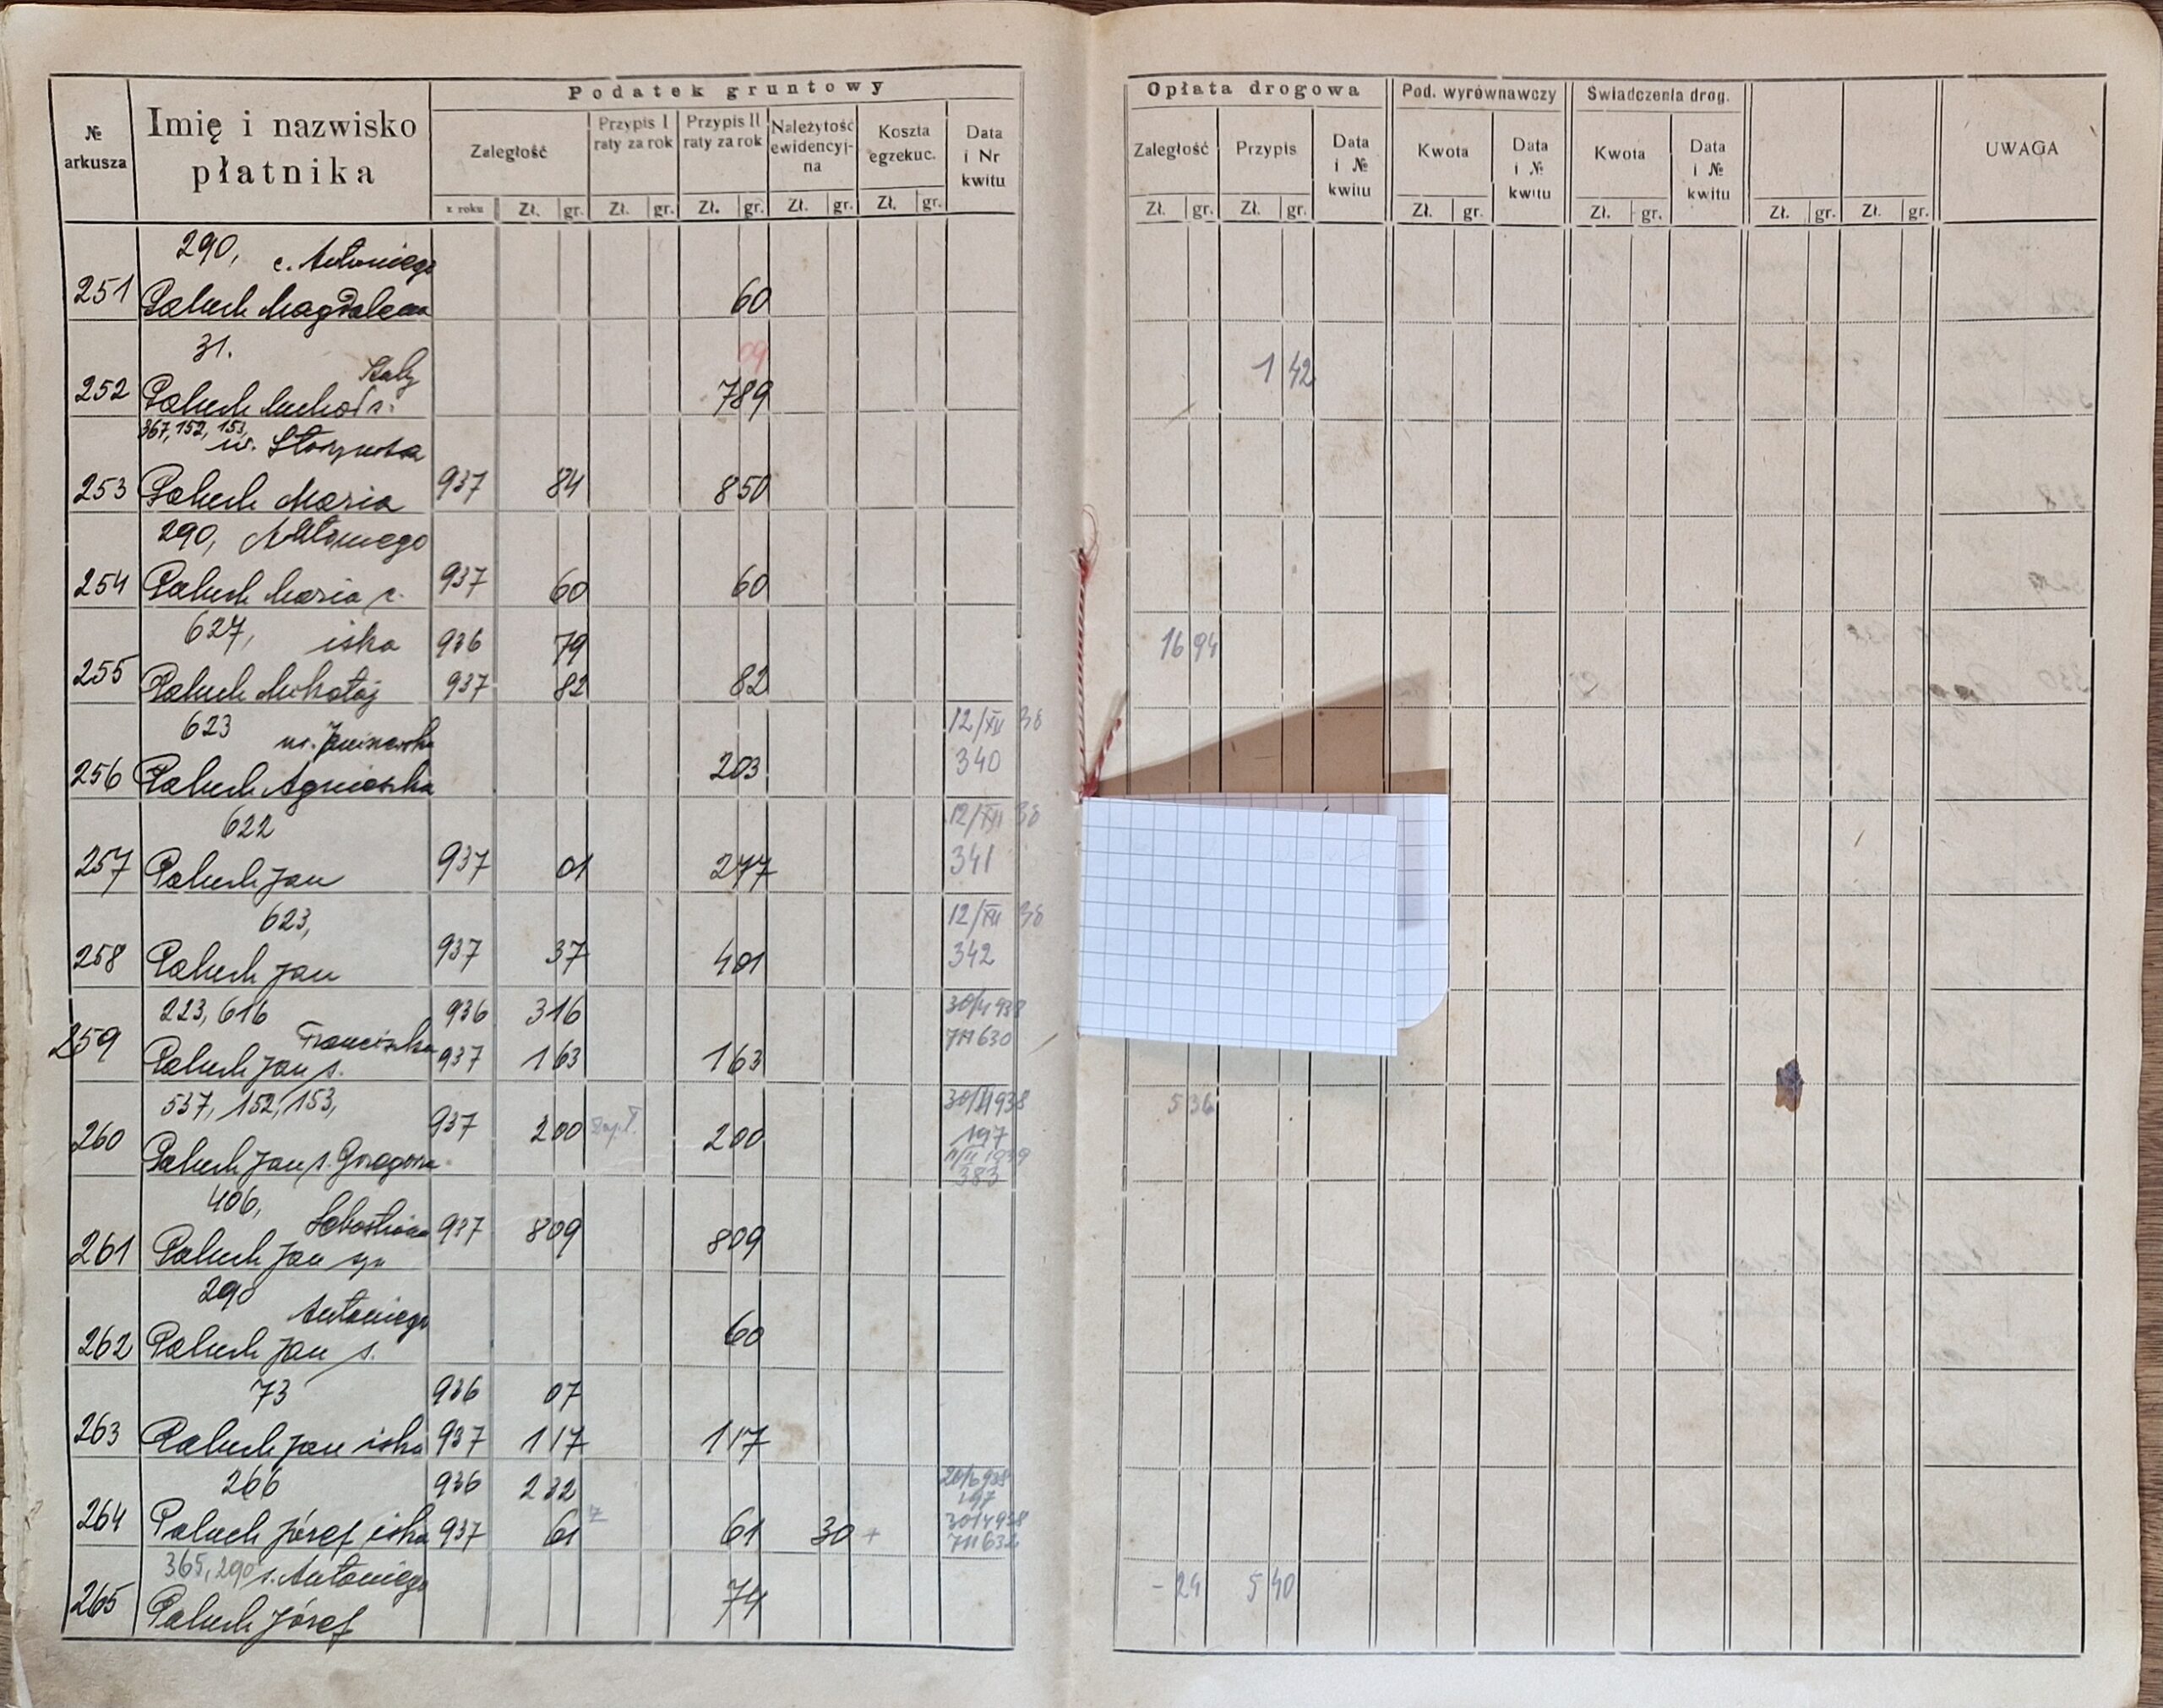 Podatek gruntowy
№ arkusza
Imię i nazwisko płatnika
Zaległość
Przypis I raty za rok
Przypis II raty za rok
Należytość ewidencyjna
Koszta egzekuc.
Data i Nr kwitu
z roku Zł. gr. Zł. gr. Zł. gr. Zł. gr. Zł. gr.
Opłata drogowa
Pod. wyrównawczy
Świadczenia drog.
Zaległość
Przypis
Data i № kwitu
Kwota
Data i № kwitu
Kwota
Data i № kwitu
UWAGA
Zł. gr. Zł. gr. Zł. gr. Zł. gr. Zł. gr. Zł. gr.
290, c. Antoniego
251 Paluch Magdalena 60
31. 09
252 Paluch Michał s. 789 1 42
367, 152, 153,
253 Paluch Maria 937 84 850
290, Antoniego
254 Paluch Maria c. 937 60 60
627, iska 936 79 16 94
255 Paluch Mikołaj 937 82 82
623 12/XII 38
256 Paluch Agnieszka 203 340
622 12/XII 38
257 Paluch Jan 937 01 277 341
623, 12/XII 38
258 Paluch Jan 937 37 401 342
223, 616 936 316 30/4 938
Franciszka
259 Paluch Jan s. 937 163 163 711630
537, 152, 153, 5 36
260 Paluch Jan s. Grzegorza 937 200 200 197
383
406, Sebastiana
261 Paluch Jan 937 809 809
290 Antoniego
262 Paluch Jan s. 60
73 936 07
263 Paluch Jan iska 937 117 117
266 936 232 20/6 938
197
264 Paluch Józef iska 937 61 61 30 + 30/4 938
711632
365, 290 s. Antoniego - 24 5 40
265 Paluch Józef 74